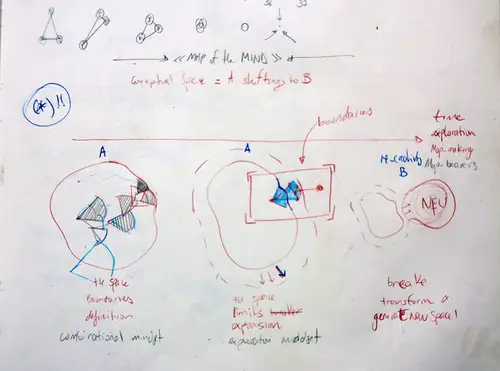 << MAP of the MIND >>
conceptual space = A shifting to B
(*)!!
boundaries
time
exploration
Map-making
A
A
B
NEW
the space
boundaries
definition
combinational mindset
the space
limits
expansion
exploration mindset
break
transform or
generate new space!